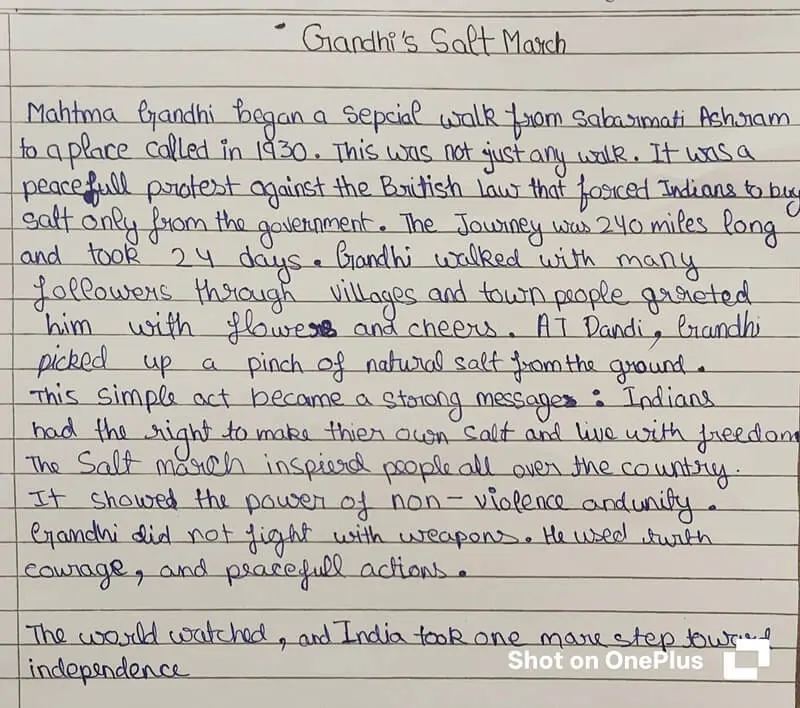 Gandhi's Salt March
Mahtma Gandhi began a sepcial walk from Sabarmati Ashram
to a place called in 1930. This was not just any walk. It was a
peacefull protest against the British law that forced Indians to buy
salt only from the government. The Journey was 240 miles long
and took 24 days. Gandhi walked with many
followers through villages and town people grreted
him with flowers and cheers. AT Dandi, Gandhi
picked up a pinch of natural salt from the ground.
This simple act became a strong message: Indians
had the right to make thier own salt and live with freedom
The Salt march inspierd people all over the country.
It showed the power of non-violence and unity.
Gandhi did not fight with weapons. He used turth
courage, and peacefull actions.
The world watched, and India took one more step toward
independence
Shot on OnePlus